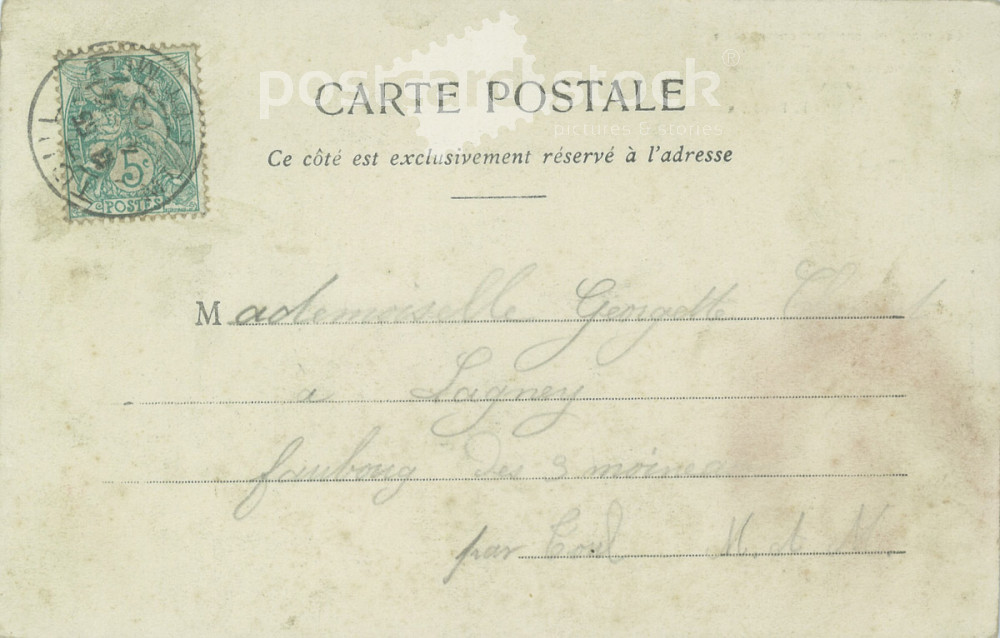 postcardstock®
pictures & stories
CARTE POSTALE
Ce côté est exclusivement réservé à l'adresse
5c
POSTES
Mademoiselle Georgette
a Lagney
faubourg des 3 moines
par Toul M. et M.